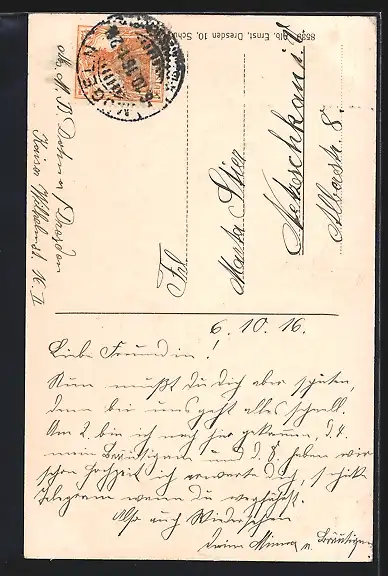 8539 Alb. Ernst, Dresden 10,
MÜGELN
6.10.16
Abs. M. B. Dohna / Dresden
Kaiser Wilhelmst. 16 II
Frl.
Marta Stier
Netzschkau i. V.
Albertstr. 8.
6. 10. 16.
Liebe Freundin!
Nun mußt Du Dich aber sputen,
denn bei uns geht alles schnell.
Am 2. bin ich nach hier gekommen, d. 4.
mein Bräutigam und d. 8. haben wir
schon Hochzeit ich erwarte dich, schicke
Telegram wenn du wegfährst.
Also auf Wiedersehen
Deine Minna u. Bräutigam